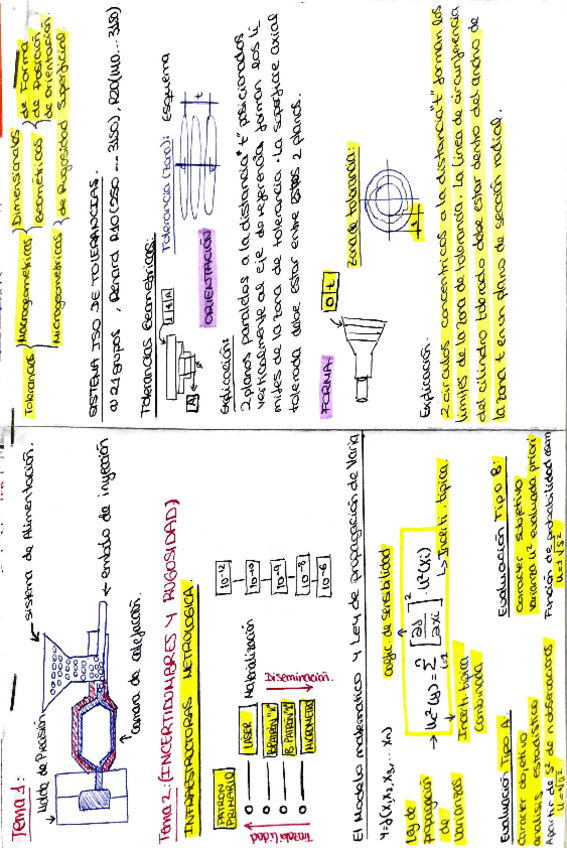 Tema 1:
Molde de Precisión
sistema de Alimentación.
embolo de inyección
Camara de calefacción.
Tema 2: (INCERTIDUMBRES Y RUGOSIDAD)
INFRAESTRUCTURAS METROLOGICA
PATRON PRIMARIO
LÁSER
B.PATRON "X"
B PATRON "Y"
MICROMETRO
Trazabilidad
Materialización
Diseminación.
10-12
10-10
10-9
10-8
10-6
El Modelo matematico y Ley de propagación de Varia
y=f(x1,x2,x3,... xn)
coefic. de sensibilidad
Ley de
Propagación
de
Varianzas
→ u²(y) = Σ i=1 n [∂f/∂xi]² · u²(xi)
Incerti. típica
combinada
Incerti. típica.
Evaluación Tipo A
Carácter objetivo
analisis estadistico
Apartir de S² de n observaciones
u=√S²
Evaluación Tipo B:
Caracter subjetivo
Varianza u² evaluada priori
Función de probabilidad asum
u=√S²
Tolerancias
Macrogeometricas
Microgeometricas
Dimensionales
Geometricas
de Forma
de Posición
de orientación.
de Rugosidad Superficial
SISTEMA ISO DE TOLERANCIAS.
a) 21 grupos, Renard R10 (250 ... 3150), R20 (140... 3150)
Tolerancias Geometricas:
A
A
ORIENTACIÓN
Tolerancia (zona):
Esquema
t
Explicación:
2 planos paralelos a la distancia "t" posicionados
verticalmente al eje de referencia forman los lí
mites de la zona de tolerancia. La superficie axial
tolerada debe estar entre estos 2 planos.
FORMA:
O t
Zona de tolerancia:
t
Explicación.
2 círculos concentricos a la distancia "t" forman los
límites de la zona de tolerancia. La línea de circunferencia
del cilindro tolerado debe estar dentro del ancho de
la zona t en un plano de sección radial.